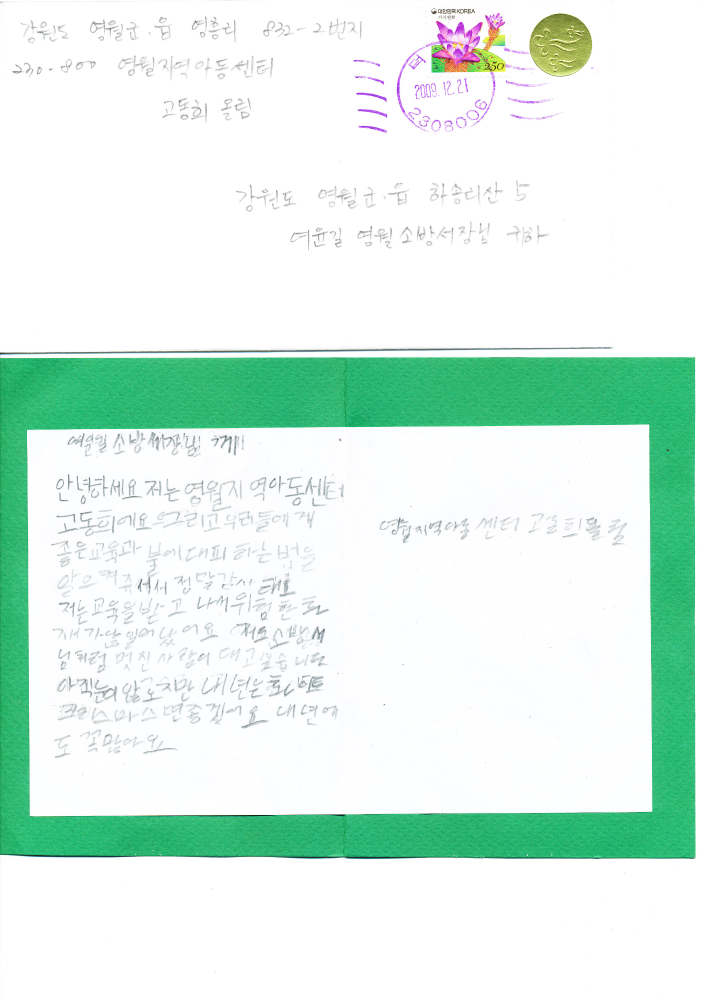 강원도 영월군·읍 영흥리 832-2번지
230-800 영월지역아동센터
고동희 올림
대한민국 KOREA
250
2009.12.21
2308006
강원도 영월군·읍 하송리산 5
여윤길 영월소방서장님 귀하
여윤길 소방서장님 께
안녕하세요 저는 영월지역아동센터
고동희에요 그리고 우리들에게
좋은교육과 불에대피 하는 법을
알으켜주세서 정말감사
저는교육을받고 나서위험한 화
재가 않일어났어요 저도소방서
님처럼 멋진사람이 대고싶습니다
아직눈이않오지만 내년는화이트
크리스마스면좋겠어요 내년에
도 꼭많아요
영월지역아동 센터 고동희올림